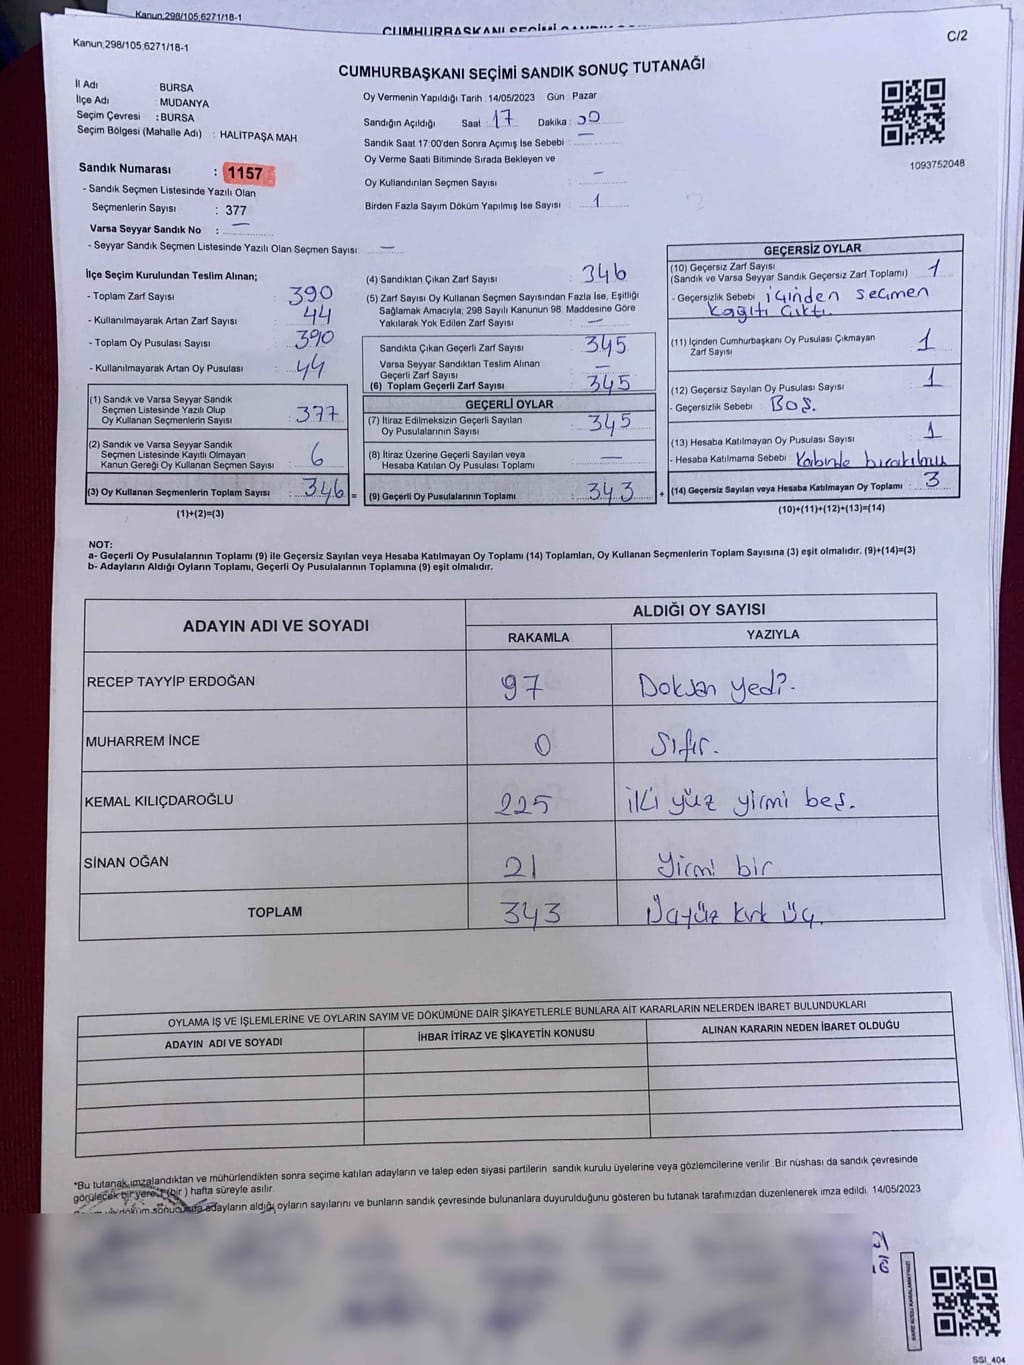 Kanun;298/105,6271/18-1
CUMHURBAŞKANI SEÇİMİ
Kanun;298/105,6271/18-1
C/2
CUMHURBAŞKANI SEÇİMİ SANDIK SONUÇ TUTANAĞI
İl Adı : BURSA
İlçe Adı : MUDANYA
Seçim Çevresi : BURSA
Seçim Bölgesi (Mahalle Adı) : HALİTPAŞA MAH
Oy Vermenin Yapıldığı Tarih : 14/05/2023 Gün : Pazar
Sandığın Açıldığı Saat : 17 Dakika : 00
Sandık Saat 17:00'den Sonra Açımış İse Sebebi : —
Oy Verme Saati Bitiminde Sırada Bekleyen ve
Oy Kullandırılan Seçmen Sayısı : —
Birden Fazla Sayım Döküm Yapılmış İse Sayısı : 1
1093752048
Sandık Numarası : 1157
- Sandık Seçmen Listesinde Yazılı Olan
Seçmenlerin Sayısı : 377
Varsa Seyyar Sandık No : —
- Seyyar Sandık Seçmen Listesinde Yazılı Olan Seçmen Sayısı: —
İlçe Seçim Kurulundan Teslim Alınan;
- Toplam Zarf Sayısı : 390
- Kullanılmayarak Artan Zarf Sayısı : 44
- Toplam Oy Pusulası Sayısı : 390
- Kullanılmayarak Artan Oy Pusulası : 44
(1) Sandık ve Varsa Seyyar Sandık
Seçmen Listesinde Yazılı Olup
Oy Kullanan Seçmenlerin Sayısı : 377
(2) Sandık ve Varsa Seyyar Sandık
Seçmen Listesinde Kayıtlı Olmayan
Kanun Gereği Oy Kullanan Seçmen Sayısı : 6
(3) Oy Kullanan Seçmenlerin Toplam Sayısı : 346 =
(1)+(2)=(3)
(4) Sandıktan Çıkan Zarf Sayısı : 346
(5) Zarf Sayısı Oy Kullanan Seçmen Sayısından Fazla İse, Eşitliği
Sağlamak Amacıyla; 298 Sayılı Kanunun 98. Maddesine Göre
Yakılarak Yok Edilen Zarf Sayısı : —
Sandıkta Çıkan Geçerli Zarf Sayısı : 345
Varsa Seyyar Sandıktan Teslim Alınan
Geçerli Zarf Sayısı : —
(6) Toplam Geçerli Zarf Sayısı : 345
GEÇERLİ OYLAR
(7) İtiraz Edilmeksizin Geçerli Sayılan
Oy Pusulalarının Sayısı : 345
(8) İtiraz Üzerine Geçerli Sayılan veya
Hesaba Katılan Oy Pusulası Toplamı : —
(9) Geçerli Oy Pusulalarının Toplamı : 343 +
GEÇERSİZ OYLAR
(10) Geçersiz Zarf Sayısı
(Sandık ve Varsa Seyyar Sandık Geçersiz Zarf Toplamı) : 1
- Geçersizlik Sebebi : içinden seçmen
kağıtı çıktı.
(11) İçinden Cumhurbaşkanı Oy Pusulası Çıkmayan
Zarf Sayısı : 1
(12) Geçersiz Sayılan Oy Pusulası Sayısı : 1
- Geçersizlik Sebebi Boş.
(13) Hesaba Katılmayan Oy Pusulası Sayısı : 1
- Hesaba Katılmama Sebebi Kabinde bırakılmış
(14) Geçersiz Sayılan veya Hesaba Katılmayan Oy Toplamı : 3
(10)+(11)+(12)+(13)=(14)
NOT:
a- Geçerli Oy Pusulalarının Toplamı (9) ile Geçersiz Sayılan veya Hesaba Katılmayan Oy Toplamı (14) Toplamları, Oy Kullanan Seçmenlerin Toplam Sayısına (3) eşit olmalıdır. (9)+(14)=(3)
b- Adayların Aldığı Oyların Toplamı, Geçerli Oy Pusulalarının Toplamına (9) eşit olmalıdır.
ADAYIN ADI VE SOYADI
ALDIĞI OY SAYISI
RAKAMLA YAZIYLA
RECEP TAYYİP ERDOĞAN 97 Doksan yedi.
MUHARREM İNCE 0 Sıfır.
KEMAL KILIÇDAROĞLU 225 iki yüz yirmi beş.
SİNAN OĞAN 21 Yirmi bir
TOPLAM 343 Üçyüz kırk üç.
OYLAMA İŞ VE İŞLEMLERİNE VE OYLARIN SAYIM VE DÖKÜMÜNE DAİR ŞİKAYETLERLE BUNLARA AİT KARARLARIN NELERDEN İBARET BULUNDUKLARI
ADAYIN ADI VE SOYADI İHBAR İTİRAZ VE ŞİKAYETİN KONUSU ALINAN KARARIN NEDEN İBARET OLDUĞU
*Bu tutanak imzalandıktan ve mühürlendikten sonra seçime katılan adayların ve talep eden siyasi partilerin sandık kurulu üyelerine veya gözlemcilerine verilir .Bir nüshası da sandık çevresinde
görülecek bir yere 1 (bir ) hafta süreyle asılır.
döküm sonucunda adayların aldığı oyların sayılarını ve bunların sandık çevresinde bulunanlara duyurulduğunu gösteren bu tutanak tarafımızdan düzenlenerek imza edildi. 14/05/2023
SSI_404